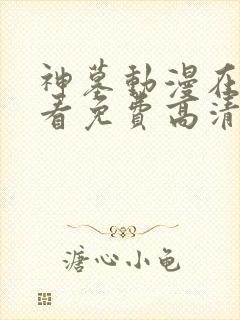 神墓動漫在
看免費高清
溏心小龟